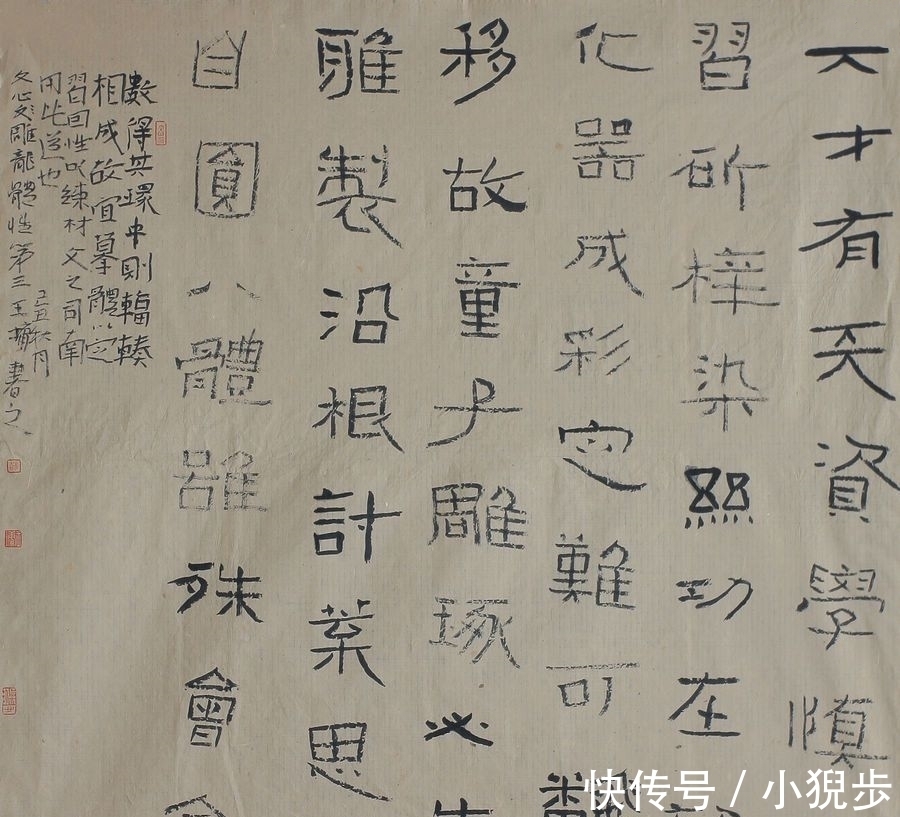 夫才有天資學慎
習斫梓染絲功在
化器成彩定難可翻
移故童子雕琢必先
雅製沿根討葉思
自圓八體雖殊會
數得其環中則輻輳
相成故宜摹體以定
習因性以練材文之司南
用此道也
己丑秋月
文心雕龍體性第三王書之
快传号 / 小猊步